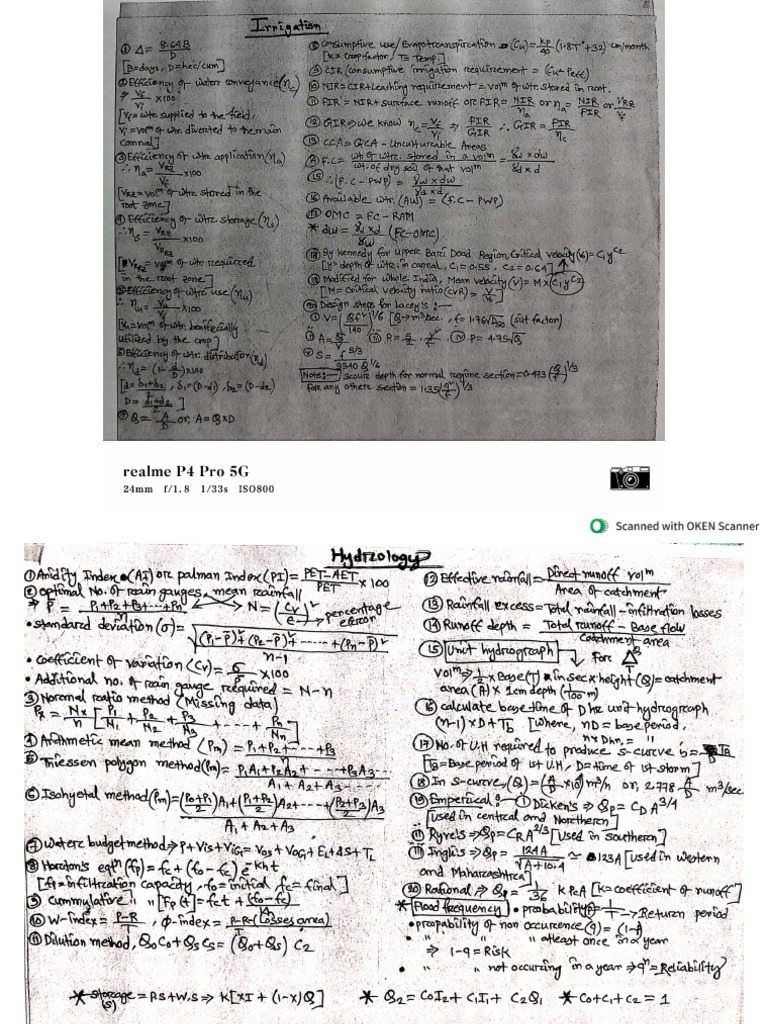 Irrigation
① Δ = 8.64B / D
[B=days, D=hec/cum]
② Efficiency of water conveyance (ηc)
⇒ Vf / Vi × 100
[Vf = wtr supplied to the field,
Vi = volm of wtr diverted to the main
cannal]
③ Efficiency of wtr application (ηa)
∴ ηa = VRZ / Vf × 100
[VRZ = volm of wtr stored in the
root zone]
④ Efficiency of wtr storage (ηs)
∴ ηs = VRZ / VRRZ × 100
[VRRZ = volm of wtr required
in the root zone]
Efficiency of wtr use (ηu)
∴ ηu = Vu / × 100
[Vu = volm of wtr beneficially
utilized by the crop]
Efficiency of wtr distribution (ηd)
∴ ηd = (1 - d/D) × 100
[d = δ1+δ2 / 2, δ1 = (D-d1), δ2 = (D-d2)
D = d1+d2 / 2 ]
Q = A / D or, A = Q×D
⑧ Consumptive use/Evapotranspiration → (Cu) = KP/40 (1.8T°+32) cm/month
[K = crop factor / T = Temp]
⑨ CIR (consumptive irrigation requirement) = Cu - Peff
⑩ NIR = CIR + Leaching requirement = volm of wtr stored in root.
⑪ FIR = NIR + surface runoff or FIR = NIR/ηa or ηa = NIR/FIR or VRZ/Vf
⑫ GIR ⇒ We know ηc = Vf/Vi ⇒ FIR/GIR ∴ GIR = FIR/ηc
⑬ CCA = GCA - Unculturable Areas
F.C = wt. of wtr. stored in a volm / wt. of dry soil of that volm = γw × dw / γd × d
⑮ ∴ (F.C - PWP) = γw × dw / γd × d
⑯ Available wtr. (AW) = (F.C - PWP)
⑰ OMC = FC - RAM
* dw = γd × d / γw (FC - OMC)
⑱ By Kennedy for upper Bari Doad Region, Critical velocity (V0) = C1 y^C2
[y = depth of wtr. in cannal, C1 = 0.55, C2 = 0.64]
⑲ Modified for whole India, Mean velocity (V) = M × (C1 y^C2)
[M = Critical velocity ratio (CVR) = V/V0]
⑳ Design steps for Lacey's :—
① V = (Qf²/140)^1/6 [Q → m³/sec, f = 1.76√D50 (silt factor)
ⓘ A = Q/V ⓘⓘⓘ R = 5/2 · V²/f ⓘⓥ P = 4.75√Q
ⓥ S = f^5/3 / 3340 Q^1/6
Note:— scour depth for normal regime section = 0.473 (Q/f)^1/3
For any others section = 1.35 (q²/f)^1/3
realme P4 Pro 5G
24mm f/1.8 1/33s ISO800
Scanned with OKEN Scanner
Hydrology
① Aridity Index (AI) or palman Index (PI) = PET-AET / PET × 100
② optimal No. of rain gauges, mean rainfall
⇒ P̄ = P1+P2+P3+···+Pn / n N = (Cv/e)² → percentage error
• standard deviation (σ) = √((P1-P̄)²+(P2-P̄)²+······+(Pn-P̄)² / n-1)
• coefficient of variation (Cv) = σ/P̄ × 100
• Additional no. of rain gauge required = N-n
③ Normal ratio method (Missing data)
Px = Nx/n [P1/N1 + P2/N2 + P3/N3 + ···· + Pn/Nn]
④ Arithmetic mean method (Pm) = P1+P2+···+P3
⑤ Triessen polygon method (Pm) = P1A1+P2A2+---+P3A3--- / A1+A2+A3----
⑥ Isohyetal method (Pm) = (P0+P1/2)A1+(P1+P2/2)A2+----+(P2+P3/2)A3 / A1+A2+A3
⑦ Water budget method ⇒ P+Vis+ViG = Vos+VoG+EL+ΔS+TL
⑧ Horton's eqtn (fp) = fc+(fo-fc) e^-Kht
[fp = infiltration capacity, fo = initial fc = final]
⑨ Cummulative " [Fp(t) = fct + (fo-fc)/Kh
⑩ W-index = P-R/T, Φ-index = P-R-(losses area)/T
⑪ Dilution method, Q0C0+QsCs = (Q0+Qs) C2
⑫ Effective rainfall = Direct runoff volm / Area of catchment
⑬ Rainfall excess = Total rainfall - infiltration losses
⑭ Runoff depth = Total runoff - Base flow / Catchment area
⑮ Unit hydrograph → For Q T
Volm ⇒ 1/2 × Base(T) in sec × height (Q) = catchment
area (A) × 1cm depth (1/100 m)
⑯ calculate base time of D hr unit hydrograph
(n-1)×D+Tb [where, nD = base period,
⑰ No. of U.H required to produce s-curve b = TB
[TB = Base period of 1st U.H, D = time of 1st storm]
⑱ In s-curve, (Q) = (A/D × 10⁴) m³/h or, 2.778 A/D m³/sec
⑲ Emperical: ① Dicken's ⇒ Qp = CD A^3/4
[used in central and Northern]
ⓘⓘ Ryve's ⇒ Qp = CR A^2/3 [used in southern]
ⓘⓘⓘ Inglis ⇒ Qp = 124A / √A+10.4 ≈ 123A [used in western
and Maharashtra]
⑳ Rational ⇒ Qp = 1/36 K Pc A [K = coefficient of runoff]
* Flood frequency • probability = 1/T → Return period
• propability of non occurence (q) = (1-P)
• " " " atleast once in a year
⇒ 1-q = Risk
• " " not occuring in a year ⇒ qn = Reliability
* storage (S) = P.S+W.S ⇒ K[XI + (1-X)Q] * Q2 = C0I2 + C1I1 + C2Q1 * C0+C1+C2 = 1